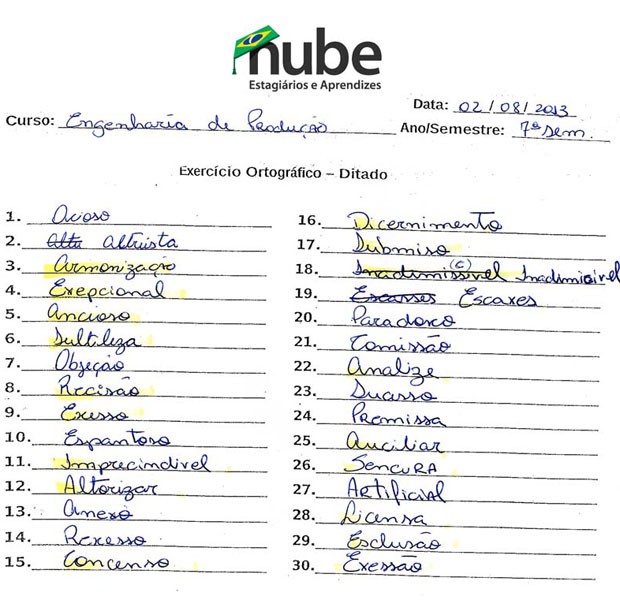 nube
Estagiários e Aprendizes
Data: 02/08/2013
Curso: Engenharia de Produção
Ano/Semestre: 7º sem.
Exercício Ortográfico – Ditado
1. Ocioso
2. Altu Altruista
3. Armonização
4. Exepcional
5. Ancioso
6. Sultileza
7. Objeção
8. Recisão
9. Exesso
10. Espantoso
11. Imprecindivel
12. Altorizar
13. Anexo
14. Rexesso
15. Concenso
16. Dicernimento
17. Submiso
18. Inademissivel (c) Inadimicivel
19. Escasses Escaxes
20. Paradoxo
21. Comissão
22. Analize
23. Sucesso
24. Promissa
25. Auciliar
26. Sencura
27. Artificial
28. Licensa
29. Esclusão
30. Exessão